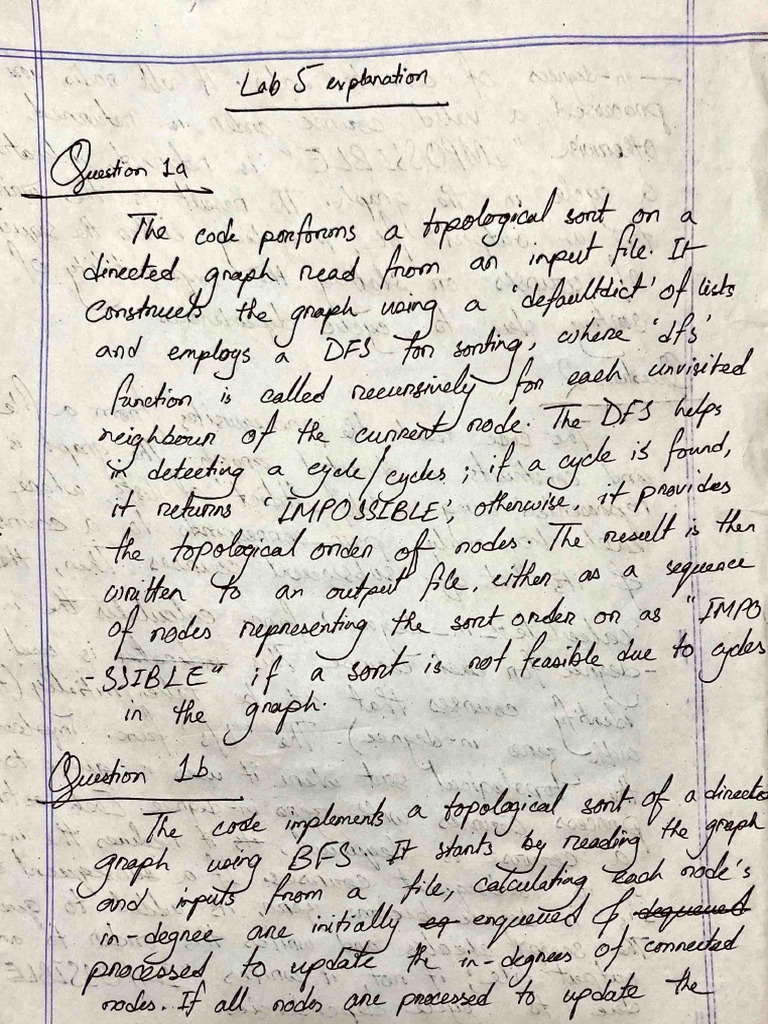 Lab 5 explanation
Question 1a
The code performs a topological sort on a
directed graph read from an input file. It
constructs the graph using a 'defaultdict' of lists
and employs a DFS for sorting, where 'dfs'
function is called recursively for each unvisited
neighbour of the current node. The DFS helps
in detecting a cycle/cycles; if a cycle is found,
it returns 'IMPOSSIBLE', otherwise, it provides
the topological order of nodes. The result is then
written to an output file, either as a sequence
of nodes representing the sort order or as "IMPO
-SSIBLE" if a sort is not feasible due to cycles
in the graph.
Question 1b
The code implements a topological sort of a directe
graph using BFS. It starts by reading the graph
and inputs from a file, calculating each node's
in-degree are initially eq enqueued & dequeued
processed to update the in-degrees of connected
nodes. If all nodes are processed to update the